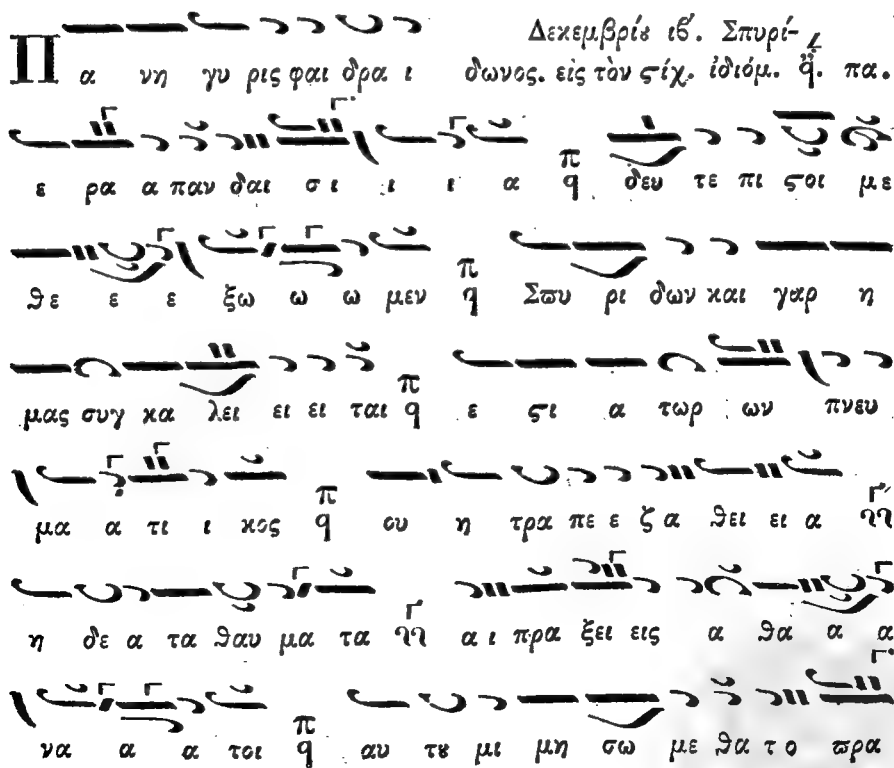 Δεκεμβρίȣ ιβ'. Σπυρί-
Πα νη γυ ρις φαι δρα ι δωνος. εἰς τὸν ϛίχ. ἰδιόμ. q̈. πα.
ε ρα α παν δαι σι ι ι α π q δευ τε πι ϛοι με
θε ε ε ξω ω ω μεν π q Σπυ ρι δων και γαρ η
μας συγ κα λει ει ει ται π q ε ϛι α τωρ ων πνευ
μα α τι ι κος π q ου η τρα πε ε ζα θει ει α
η δε α τα θαυ μα τα αι πρα ξει εις α θα α α
να α α τοι π q αυ τȣ μι μη σω με θα το πρα